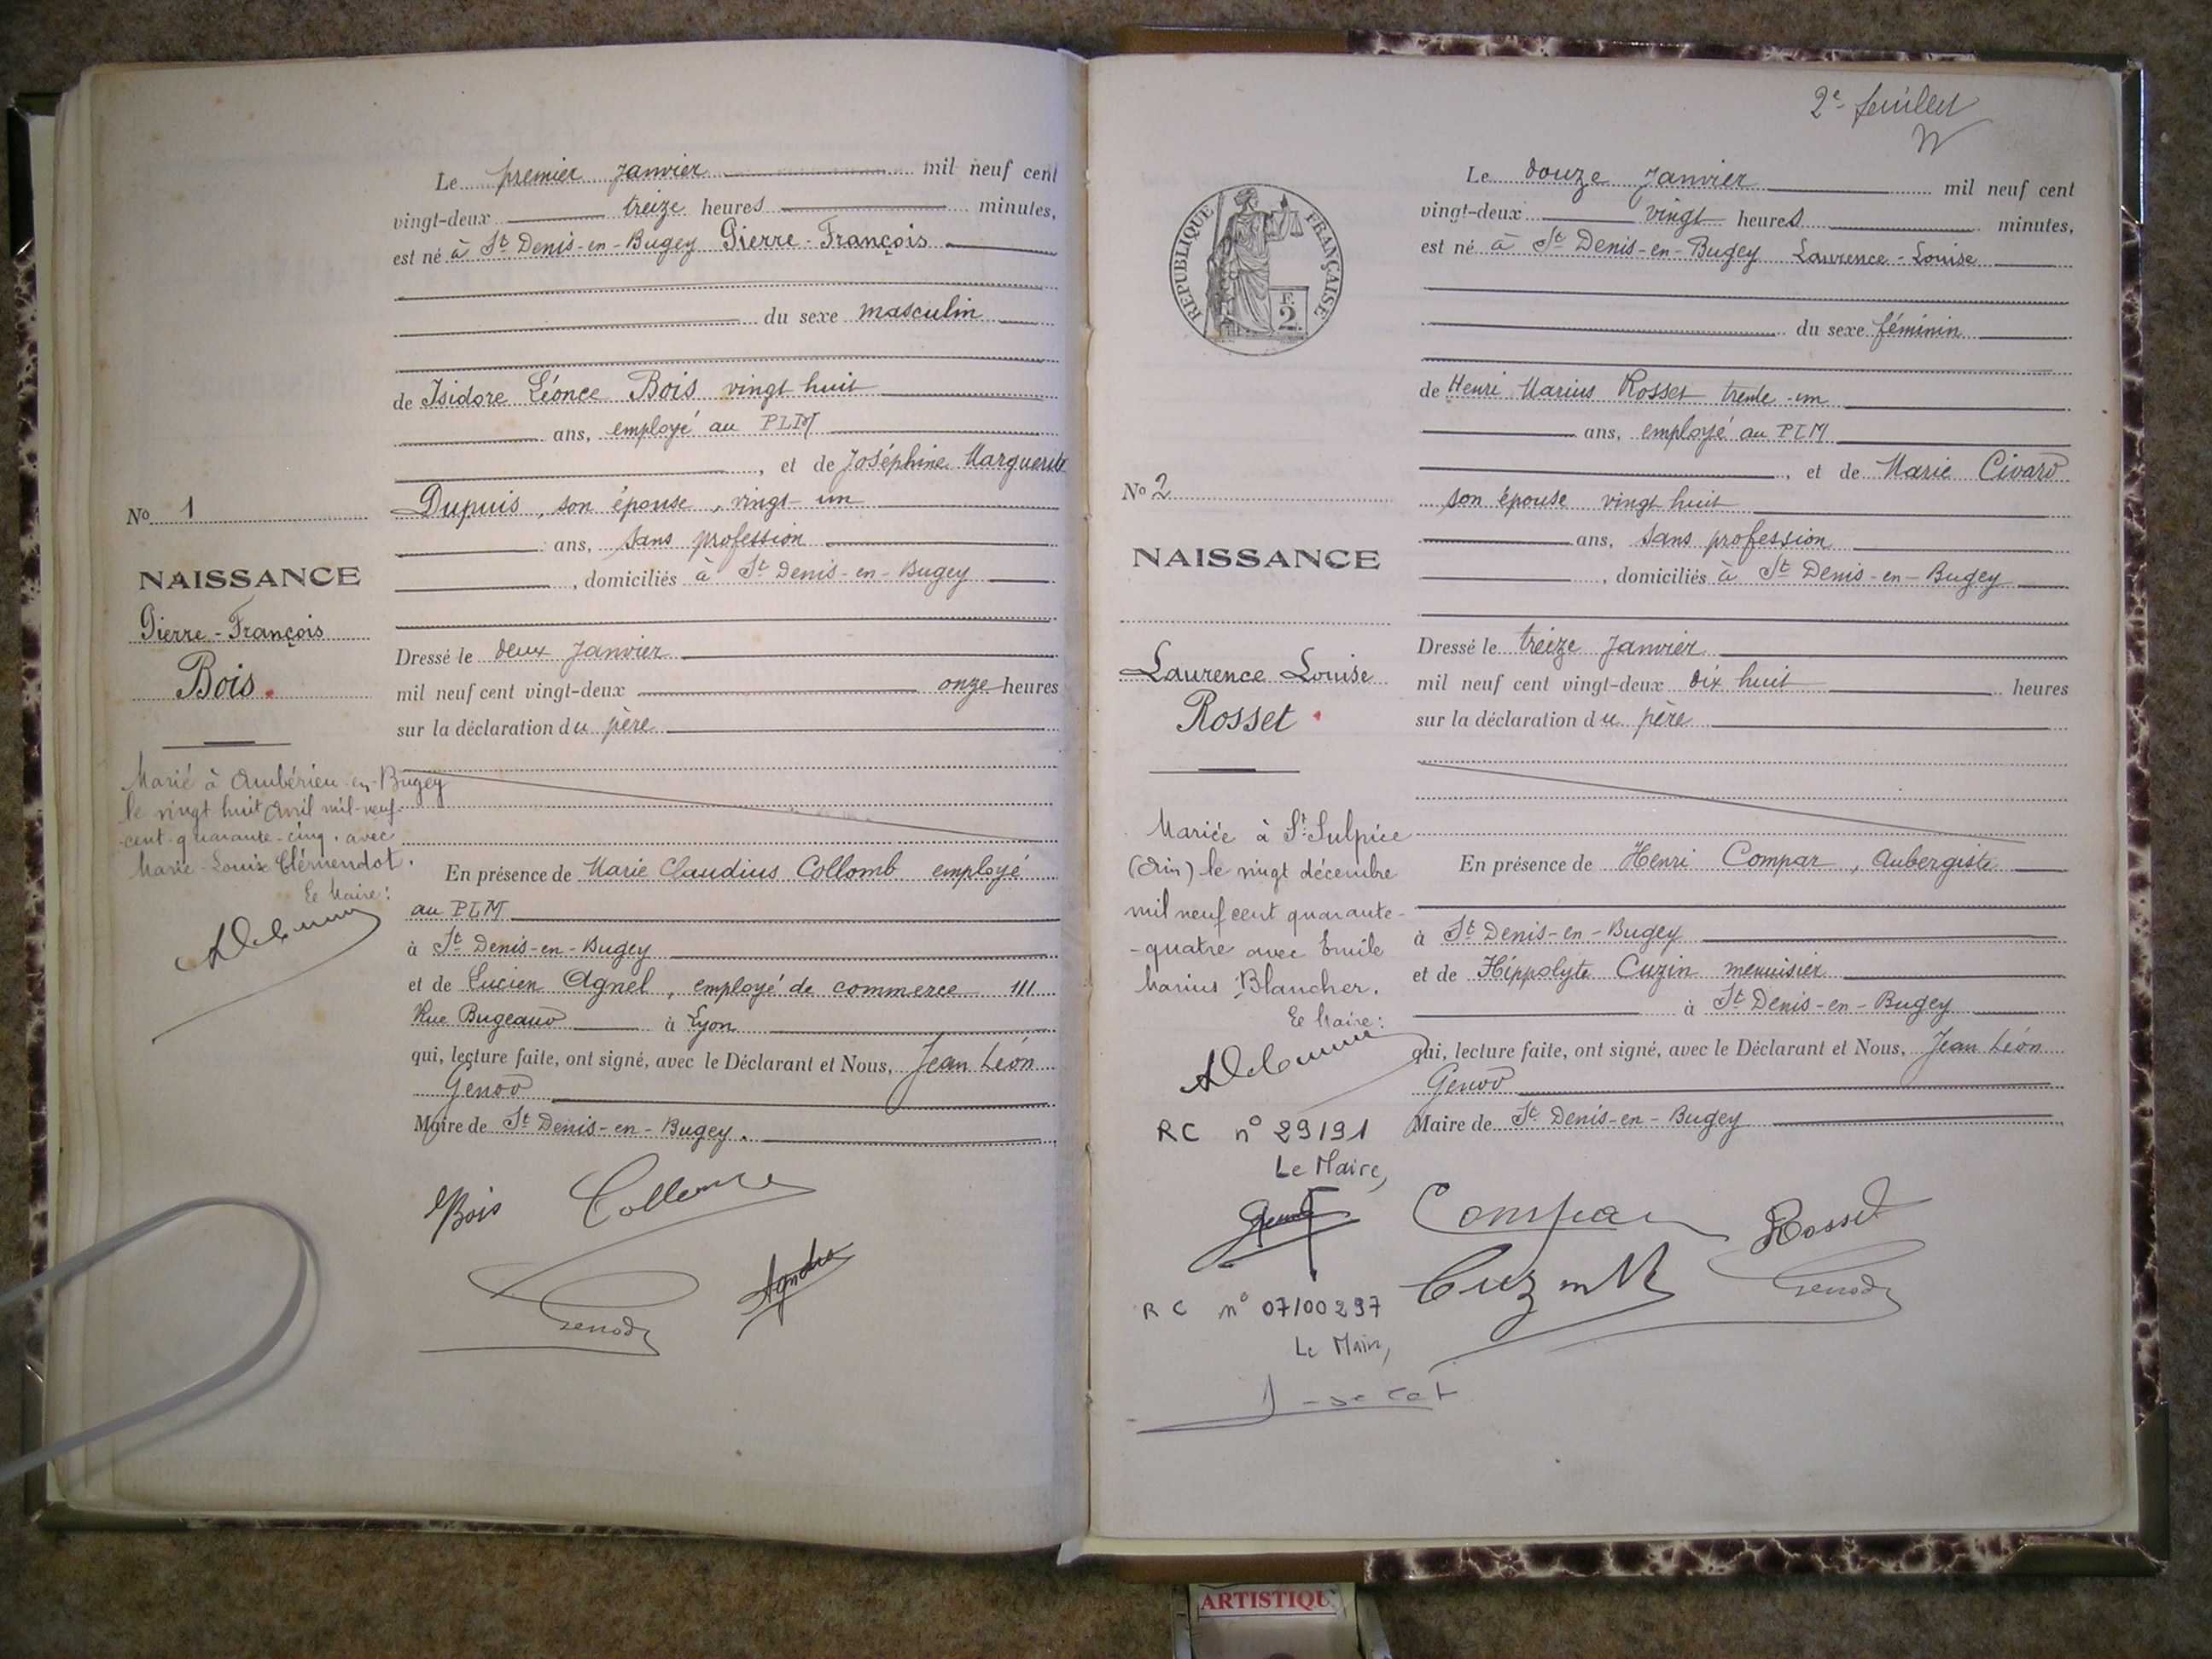 Le premier Janvier mil neuf cent
vingt-deux treize heures minutes,
est né à St Denis-en-Bugey Pierre-François
du sexe masculin
de Isidore Léonce Bois vingt huit
ans, employé au PLM
, et de Joséphine Marguerite
No 1
Dupuis, son épouse, vingt-un
ans, sans profession
NAISSANCE
, domiciliés à St Denis-en-Bugey
Pierre-François
Bois
Dressé le deux Janvier
mil neuf cent vingt-deux onze heures
sur la déclaration du père
Marié à Ambérieu-en-Bugey
le vingt huit Avril mil-neuf-
cent-quarante-cinq. avec
Marie-Louise Clémendot.
Le Maire:
En présence de Marie Claudius Collomb employé
au PLM
à St Denis-en-Bugey
et de Lucien Agnel, employé de commerce 111
Rue Bugeaud à Lyon
qui, lecture faite, ont signé, avec le Déclarant et Nous, Jean Léon
Genod
Maire de St Denis-en-Bugey.
Bois
Genod
2e feuillet
REPUBLIQUE FRANÇAISE
F.
2.
Le douze Janvier mil neuf cent
vingt-deux vingt heures minutes,
est né à St Denis-en-Bugey Laurence-Louise
du sexe féminin
de Henri Marius Rosset trente-un
ans, employé au PLM
, et de Marie Civard
No 2
son épouse vingt huit
ans, sans profession
NAISSANCE
, domiciliés à St Denis-en-Bugey
Laurence Louise
Rosset
Dressé le treize Janvier
mil neuf cent vingt-deux dix huit heures
sur la déclaration du père
Mariée à St Sulpice
(Ain) le vingt décembre
mil neuf cent quarante-
-quatre avec Emile
Marius Blancher.
Le Maire:
RC n° 29191
Le Maire,
RC n° 07/00297
Le Maire,
En présence de Henri Compar, Aubergiste
à St Denis-en-Bugey
et de Hippolyte Cuzin menuisier
à St Denis-en-Bugey
qui, lecture faite, ont signé, avec le Déclarant et Nous, Jean Léon
Genod
Maire de St Denis-en-Bugey
Compar
Rosset
Genod
ARTISTIQU